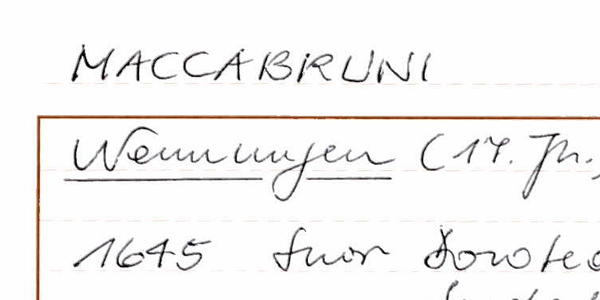 MACCABRUNI
Wemmingen (17. Jh.)
1645 Suor Doroteo